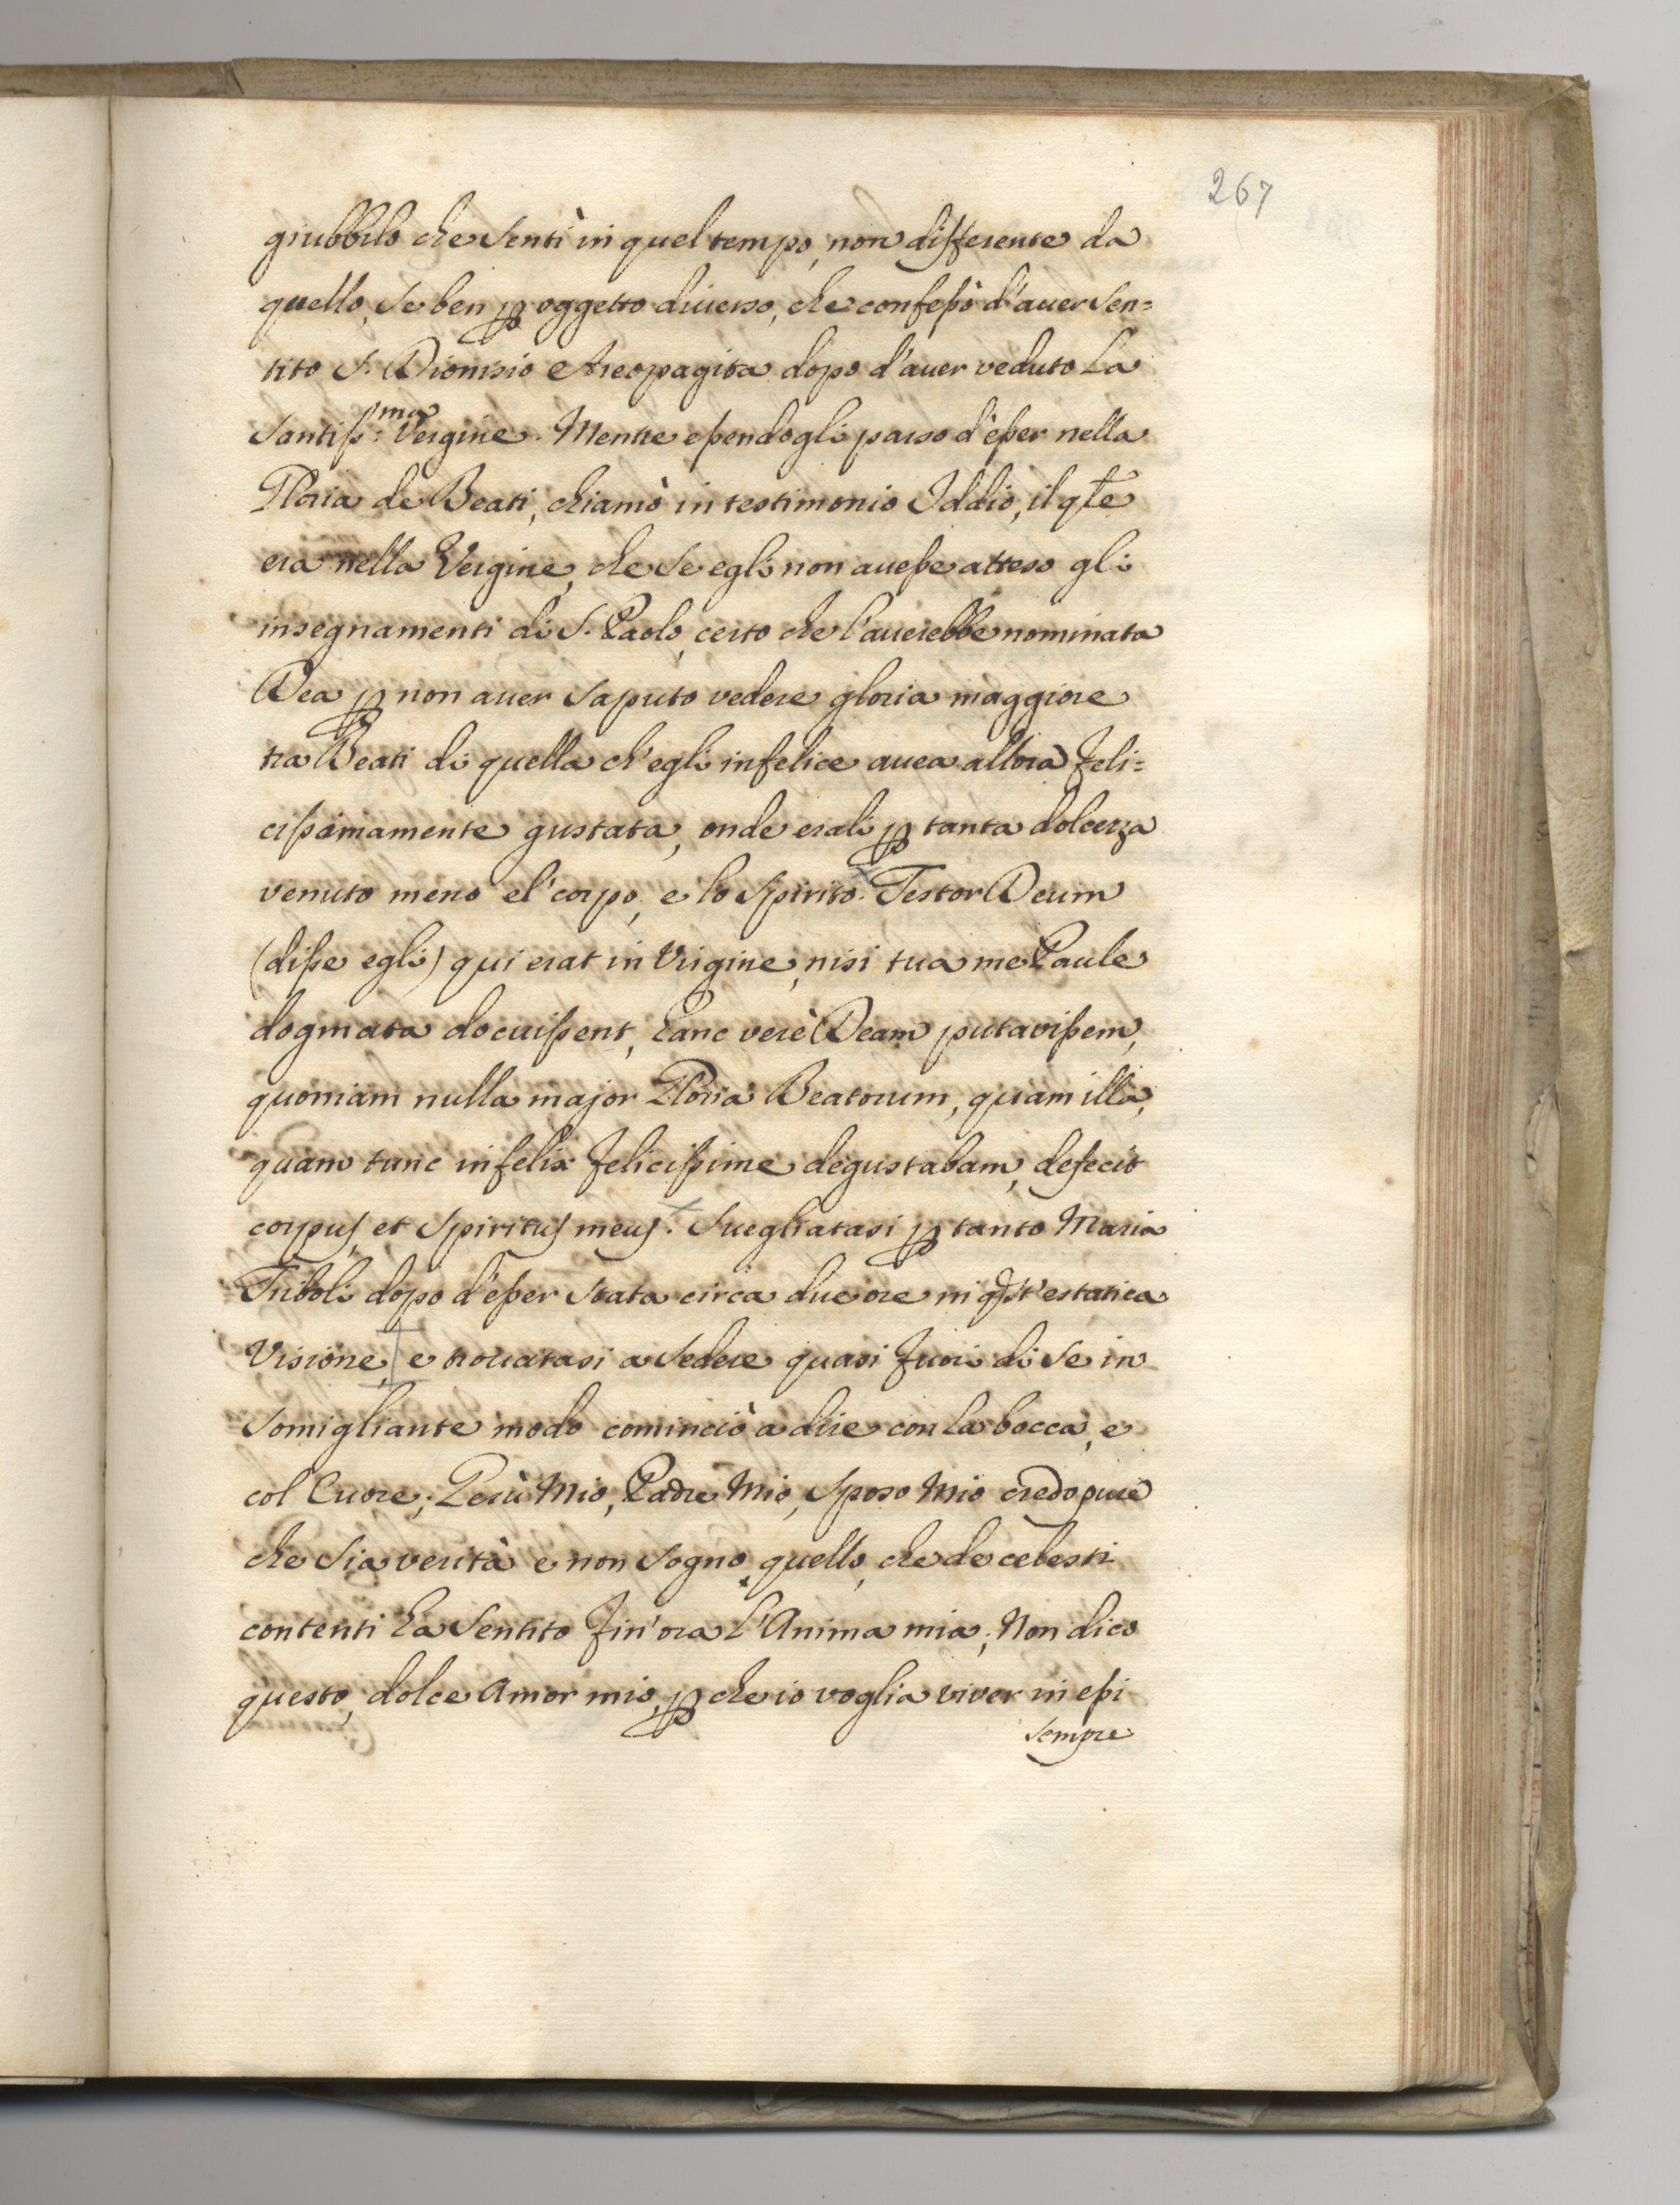 267
giubbilo che sentì in quel tempo, non differente da
quello, se ben ꝑ oggetto diverso, che confessò d'auer sen=
tito S. Dionisio Areopagita dopo d'auer veduto la
Santiss:ma Vergine. Mentre essendogli parso d'esser nella
Gloria de Beati, chiamò in testimonio Iddio, il qle
era nella Vergine, che se egli non auesse atteso gli
insegnamenti di S. Paolo, certo che l'auerebbe nominata
Dea ꝑ non auer saputo vedere gloria maggiore
tra Beati di quella ch'egli infelice auea allora feli=
cissimamente gustata, onde erali ꝑ tanta dolcezza
venuto meno el' corpo, e lo spirito. Testor Deum
(disse egli) qui erat in Virgine, nisi tua me Paule
dogmata docuissent, hanc verè Deam putavissem,
quoniam nulla major Gloria Beatorum, quam illa,
quam tunc infelix felicissime degustabam, defecit
corpus, et spiritus meus. Suegliatasi ꝑ tanto Maria
Triboli dopo d'esser stata circa due ore in qst'estatica
Visione, e trouatasi a sedere quasi fuori di se in
somigliante modo cominciò a dire con la bocca, e
col Cuore; Gesù Mio, Padre Mio, Sposo Mio credo pure
che sia verità e non sogno quello, che de celesti
contenti ha sentito fin'ora l'Anima mia; Non dico
questo, dolce Amor mio, ꝑ che io voglia viver in essi
sempre